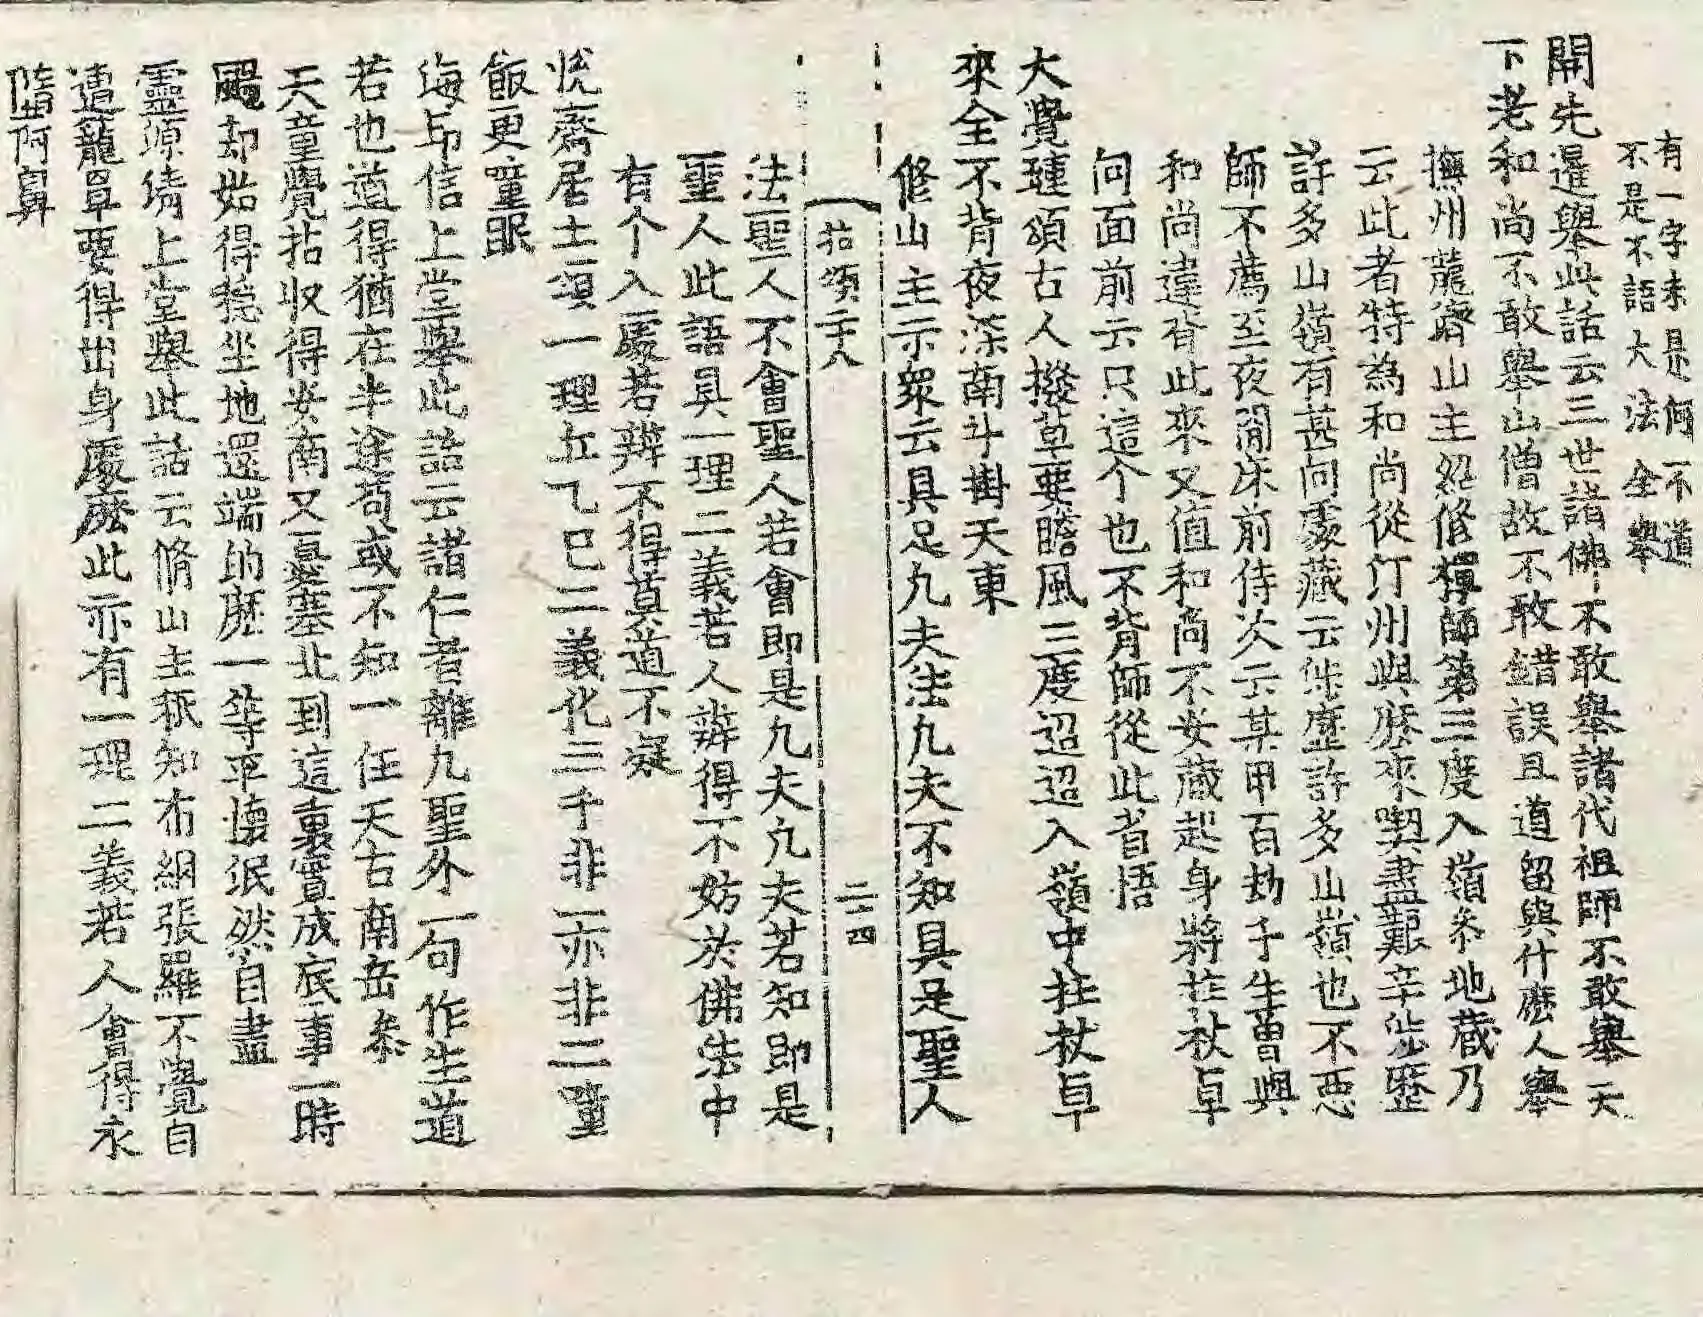 有一字未是何不道
不是不語大法全舉
開先暹舉此話云三世諸佛不敢舉諸代祖師不敢舉天
下老和尚不敢舉山僧故不敢錯誤且道留與什麽人舉
撫州龍濟山主紹修禪師第三度入嶺叅地藏乃
云此者特為和尚從汀州與麽來喫盡艱辛涉歷
許多山嶺有甚向處藏云涉歷許多山嶺也不惡
師不薦至夜間床前侍次云某甲百劫千生曽與
和尚違背此來又值和尚不安藏起身將拄杖卓
向面前云只這个也不背師從此省悟
大覺璉頌古人撥草要瞻風三度迢迢入嶺中拄杖卓
來全不背夜深南斗掛天東
修山主示眾云具足凢夫法凢夫不知具足聖人
拈頌二十八
二十四
法聖人不會聖人若會即是凢夫凢夫若知即是
聖人此語具一理二義若人辨得不妨於佛法中
有个入處若辨不得莫道不疑
恱齋居士頌一理丘乙巳二義化三千非一亦非二噇
飯更噇眠
海印信上堂舉此語云諸仁者離凢聖外一句作生道
若也道得猶在半途苟或不知一任天台南岳叅
天童覺拈収得安南又憂塞北到這裏實成底事一時
颺却始得穏坐地還端的麽一等平懷泯然自盡
靈源清上堂舉此話云脩山主秖知布網張羅不覺自
遭籠罩要得出身處麽此亦有一理二義若人會得永
陸阿鼻